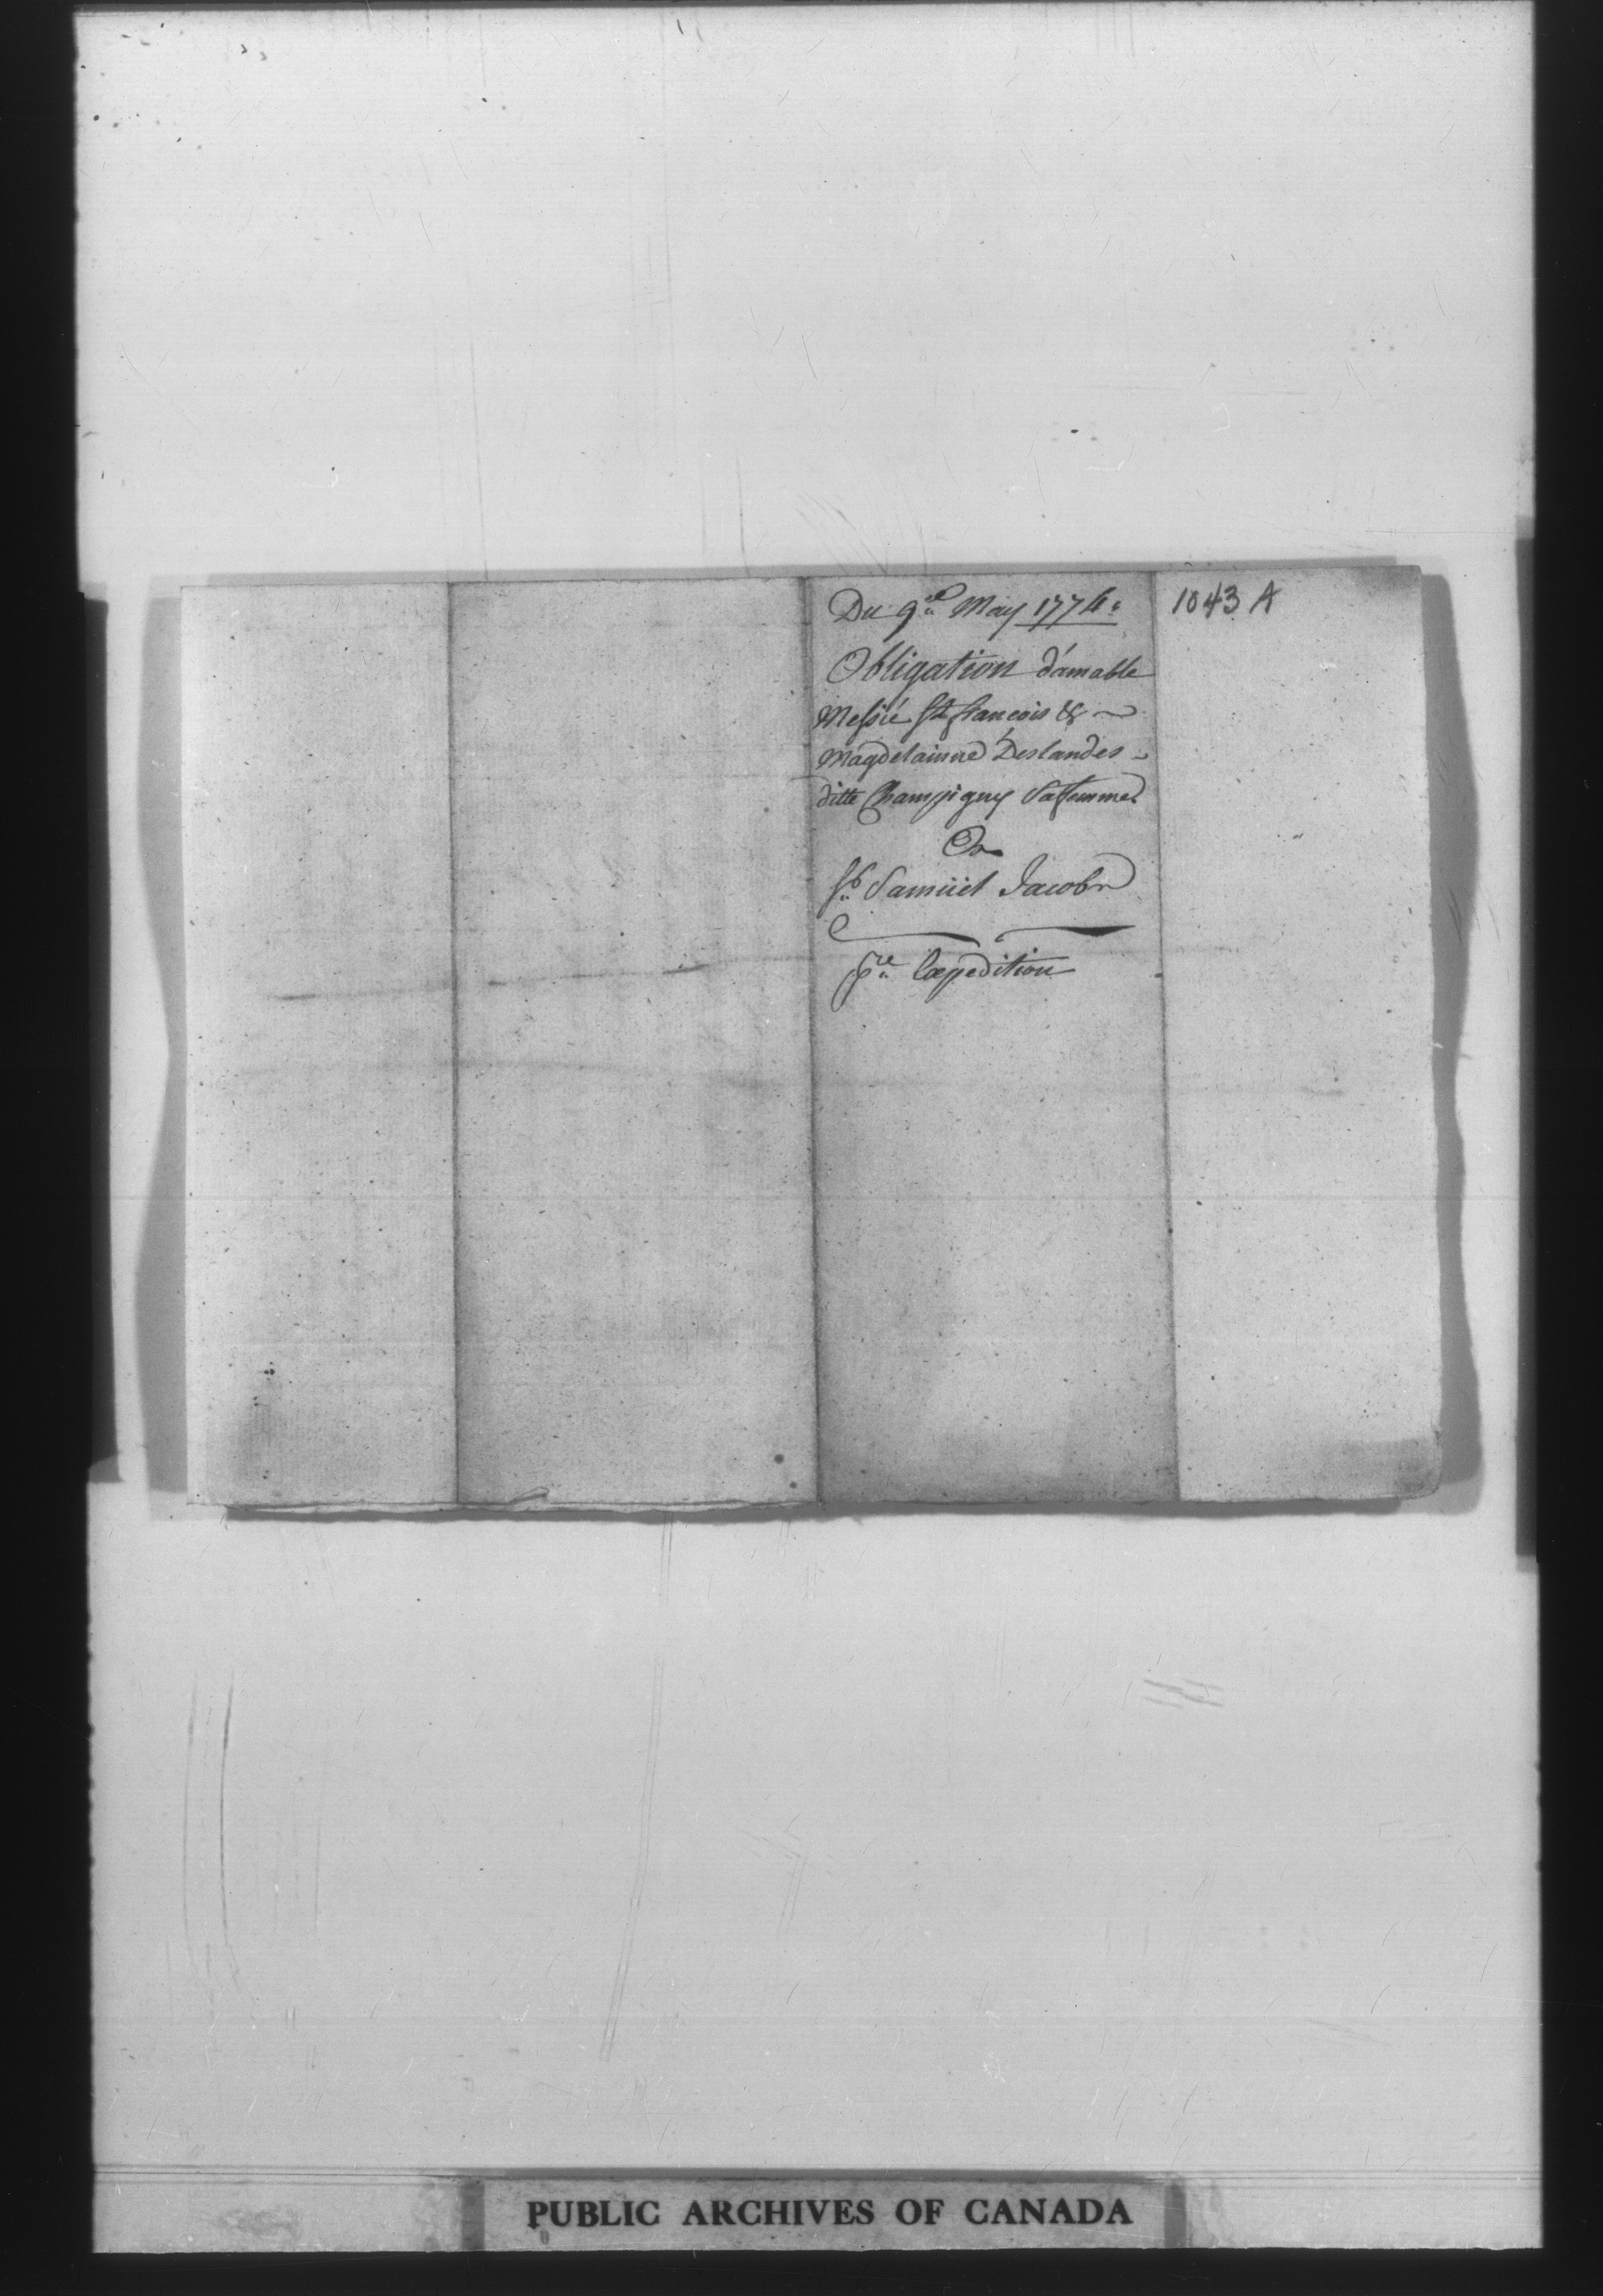 Du 9e May 1774:
1043 A
Obligation d'amable
Messié st francois &
Magdelainne Deslandes
ditte Champigny Sa femme
A
Sr Samüel Jacobs
pre Expedition
PUBLIC ARCHIVES OF CANADA